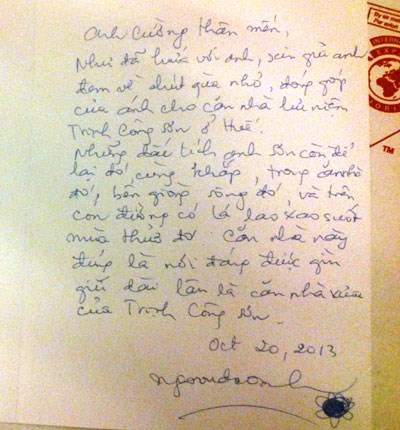 Anh Cường thân mến,
Như đã hứa với anh, xin gửi anh
đem về chút quà nhỏ, đóng góp
của ánh cho căn nhà lưu niệm
Trịnh Công Sơn ở Huế.
Những dấu tích anh Sơn còn để
lại đó, cùng khắp, trong căn nhà
đó, bên giòng sông đó, và trên
con đường có lá lao xao suốt
mùa thuở đó. Căn nhà này
đúng là nơi đáng được gìn
giữ dài lâu là căn nhà xưa
của Trịnh Công Sơn.
Oct 20, 2013
INTERN
TM